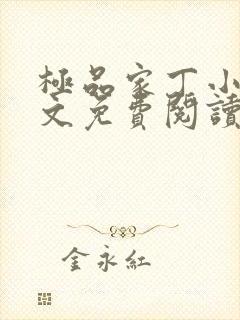 極品家丁小
文免費閱讀
金永紅